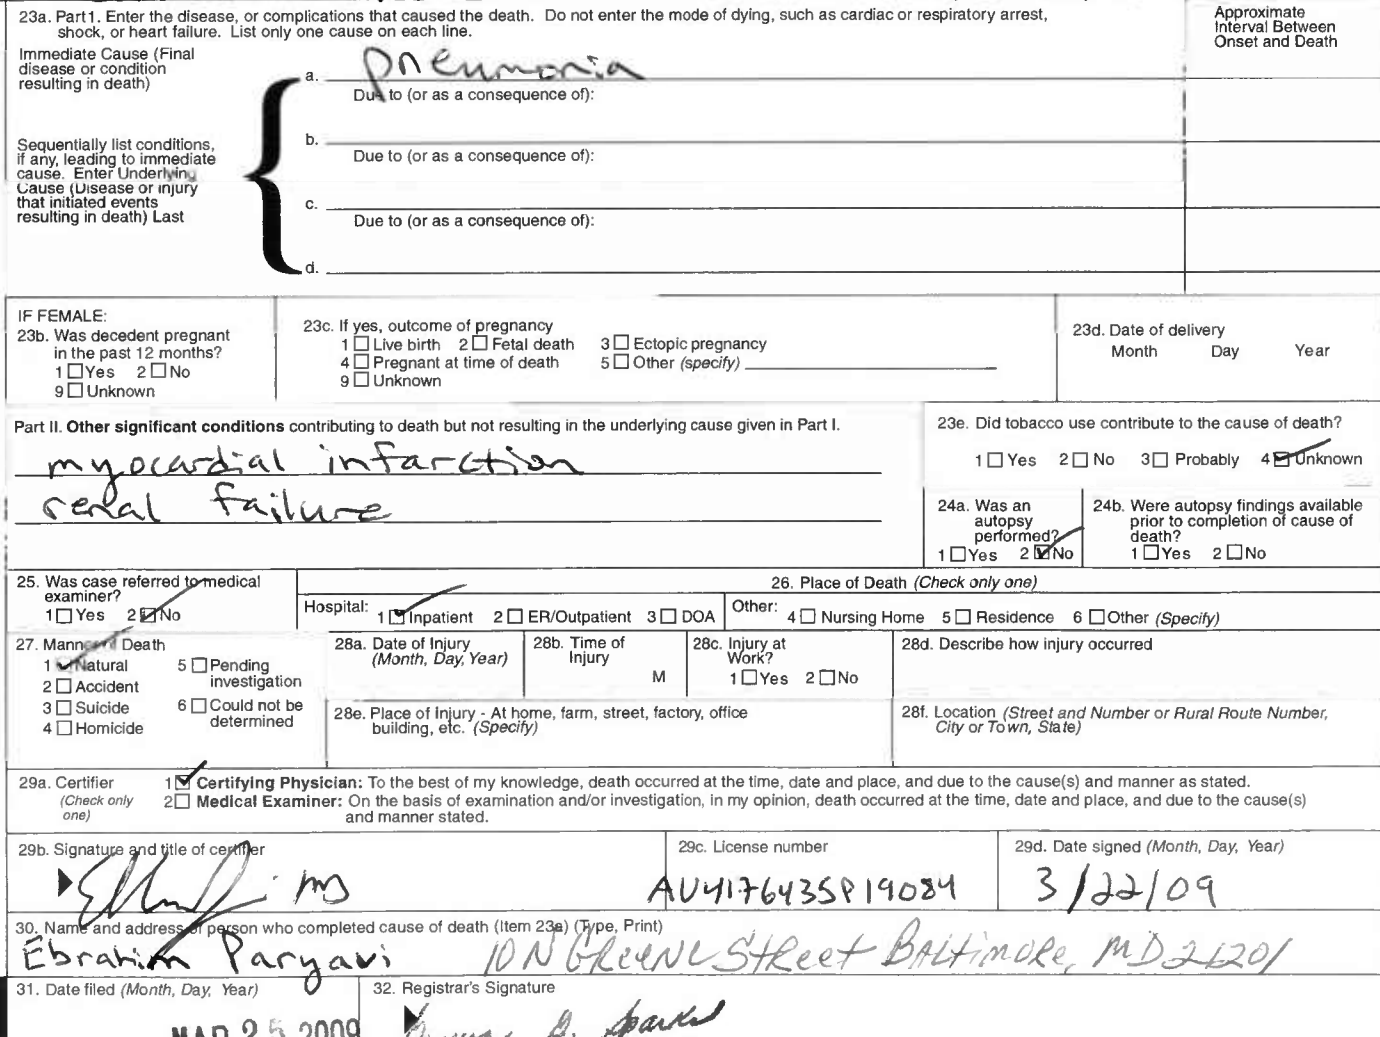 23a. Part1. Enter the disease, or complications that caused the death. Do not enter the mode of dying, such as cardiac or respiratory arrest,
shock, or heart failure. List only one cause on each line.
Approximate
Interval Between
Onset and Death
Immediate Cause (Final
disease or condition
resulting in death)
a. pneumonia
Due to (or as a consequence of):
b.
Due to (or as a consequence of):
Sequentially list conditions,
if any, leading to immediate
cause. Enter Underlying
Cause (Disease or injury
that initiated events
resulting in death) Last
c.
Due to (or as a consequence of):
d.
IF FEMALE:
23b. Was decedent pregnant
in the past 12 months?
1 Yes 2 No
9 Unknown
23c. If yes, outcome of pregnancy
1 Live birth 2 Fetal death 3 Ectopic pregnancy
4 Pregnant at time of death 5 Other (specify)
9 Unknown
23d. Date of delivery
Month Day Year
Part II. Other significant conditions contributing to death but not resulting in the underlying cause given in Part I.
myocardial infarction
renal failure
23e. Did tobacco use contribute to the cause of death?
1 Yes 2 No 3 Probably 4 Unknown
24a. Was an
autopsy
performed?
1 Yes 2 No
24b. Were autopsy findings available
prior to completion of cause of
death?
1 Yes 2 No
25. Was case referred to medical
examiner?
1 Yes 2 No
26. Place of Death (Check only one)
Hospital: 1 Inpatient 2 ER/Outpatient 3 DOA
Other: 4 Nursing Home 5 Residence 6 Other (Specify)
27. Manner of Death
1 Natural 5 Pending
investigation
2 Accident
3 Suicide 6 Could not be
determined
4 Homicide
28a. Date of Injury
(Month, Day, Year)
28b. Time of
Injury
M
28c. Injury at
Work?
1 Yes 2 No
28d. Describe how injury occurred
28e. Place of Injury - At home, farm, street, factory, office
building, etc. (Specify)
28f. Location (Street and Number or Rural Route Number,
City or Town, State)
29a. Certifier
(Check only
one)
1 Certifying Physician: To the best of my knowledge, death occurred at the time, date and place, and due to the cause(s) and manner as stated.
2 Medical Examiner: On the basis of examination and/or investigation, in my opinion, death occurred at the time, date and place, and due to the cause(s)
and manner stated.
29b. Signature and title of certifier
MD
29c. License number
AU4176435P19084
29d. Date signed (Month, Day, Year)
3/22/09
30. Name and address of person who completed cause of death (Item 23a) (Type, Print)
Ebrahim Paryavi 10 N Greene Street Baltimore, MD 21201
31. Date filed (Month, Day, Year)
MAR 25 2009
32. Registrar's Signature